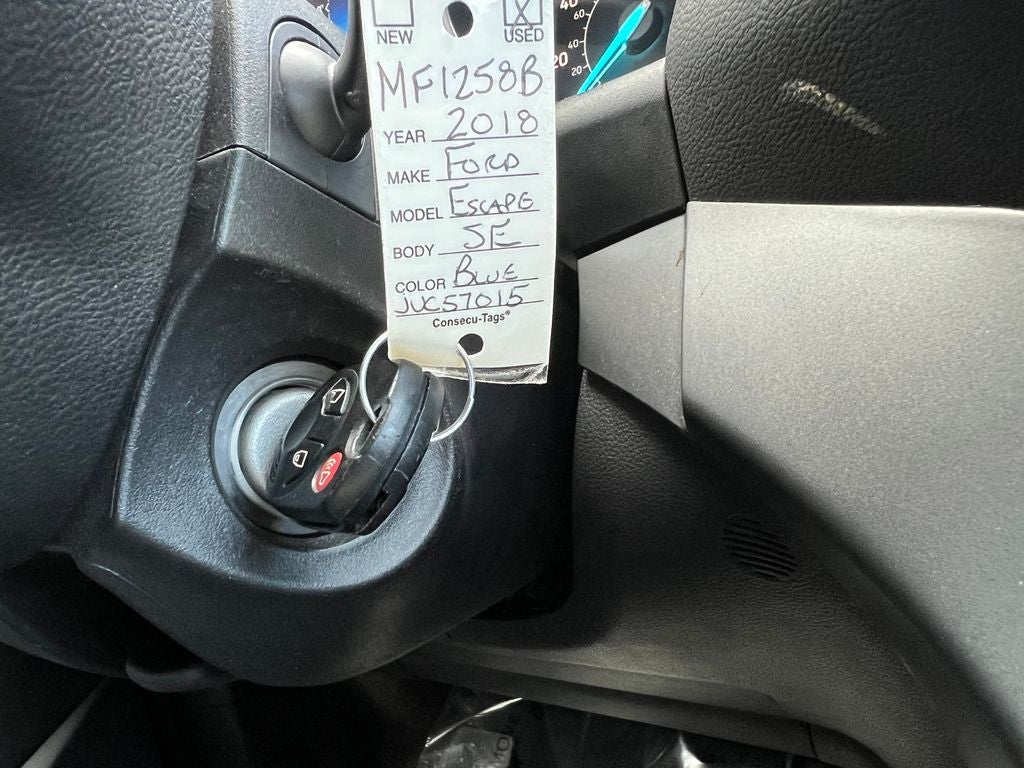 NEW USED
MF1258B
YEAR 2018
MAKE FORD
MODEL ESCAPE
BODY SE
COLOR BLUE
JUC57015
Consecu-Tags®
60
40
40
20
20